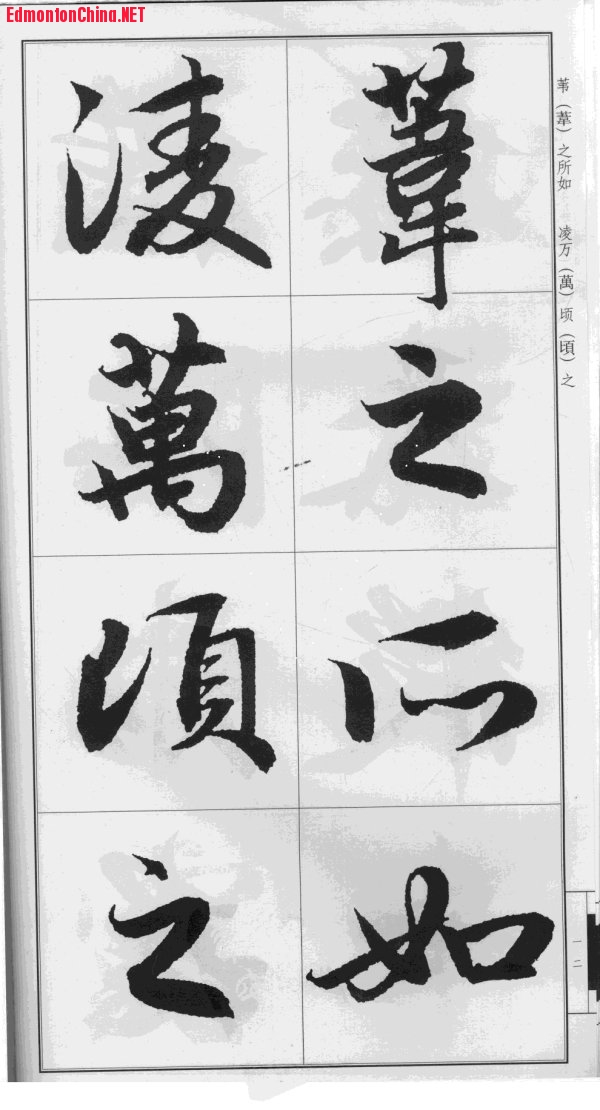 EdmontonChina.NET
苇（葦）之所如　凌万（萬）顷（頃）之
葦之所如
凌萬頃之
一二